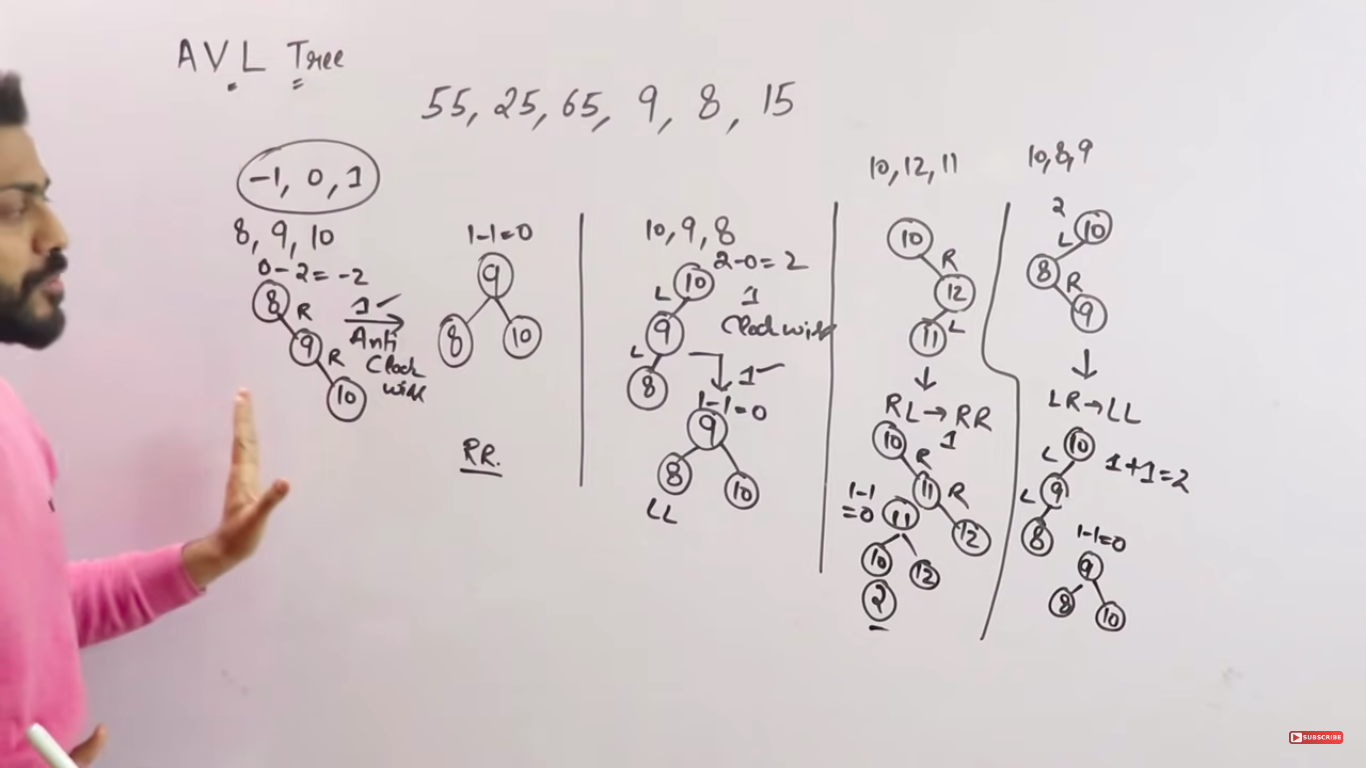 AVL Tree
55, 25, 65, 9, 8, 15
-1, 0, 1
8, 9, 10
0-2=-2
8
R
9
R
10
1✓
Anti
Clock
wise
1-1=0
9
8
10
RR.
10, 9, 8
2-0=2
10
L
9
L
8
1
Clockwise
1✓
1-1=0
9
8
10
LL
10, 12, 11
10
R
12
L
11
↓
RL→RR
10
1
R
11
R
12
1-1
=0
11
10
12
2
10,8,9
2
10
L
8
R
9
↓
LR→LL
10
L
9
L
8
1+1=2
1-1=0
9
8
10
SUBSCRIBE